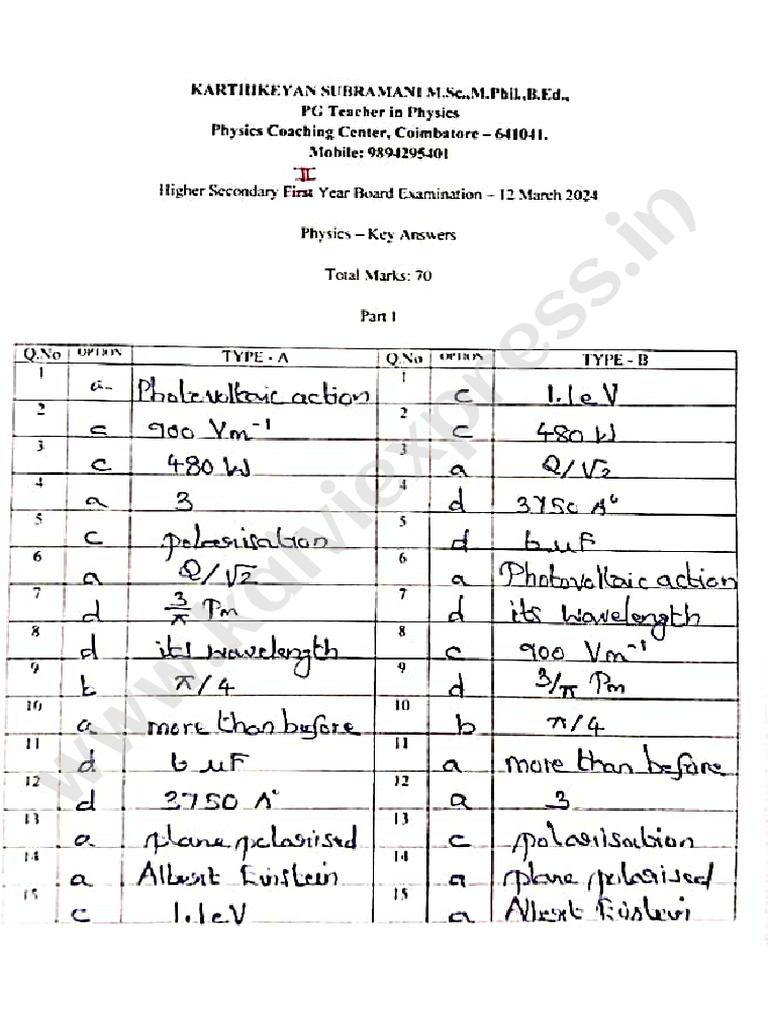 KARTHIKEYAN SUBRAMANI M.Sc.,M.Phil.,B.Ed.,
PG Teacher in Physics
Physics Coaching Center, Coimbatore – 641041.
Mobile: 9894295401
II
Higher Secondary First Year Board Examination – 12 March 2024
Physics – Key Answers
Total Marks: 70
Part I
Q.No OPTION TYPE - A Q.No OPTION TYPE - B
1 a Photovoltaic action 1 c 1.1eV
2 c 900 Vm⁻¹ 2 c 480 W
3 c 480 W 3 a Q/√2
4 a 3 4 d 3750 A°
5 c polarisation 5 d 6 μF
6 a Q/√2 6 a Photovoltaic action
7 d 3/π Pm 7 d its wavelength
8 d its wavelength 8 c 900 Vm⁻¹
9 b π/4 9 d 3/π Pm
10 a more than before 10 b π/4
11 d 6 μF 11 a more than before
12 d 3750 A° 12 a 3
13 a plane polarised 13 c polarisation
14 a Albert Einstein 14 a plane polarised
15 c 1.1eV 15 a Albert Einstein
www.kalviexpress.in